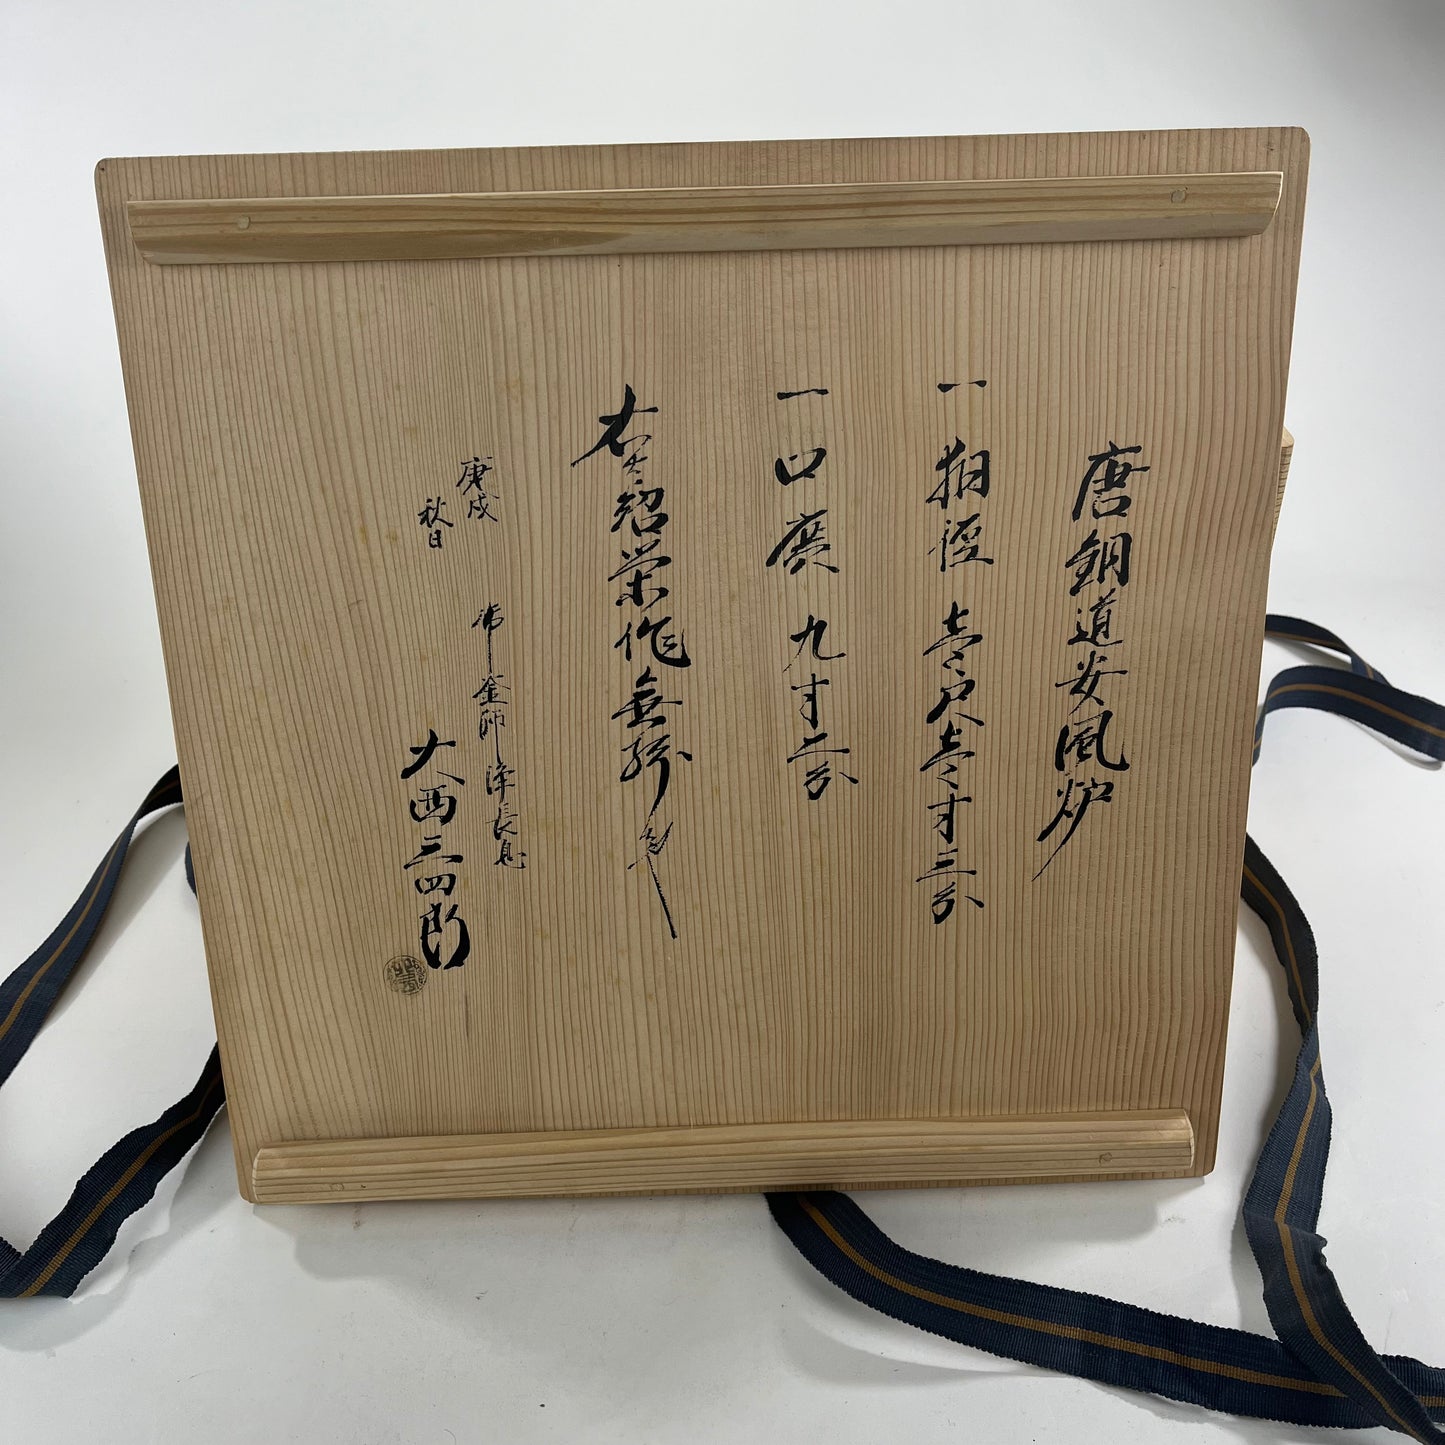 唐銅道安風炉
一 胴径 壱尺壱寸三分
一 口広 九寸二分
右者紹栄作無紛者也
庚戌
秋日
御釜師浄長息
大西三四郎